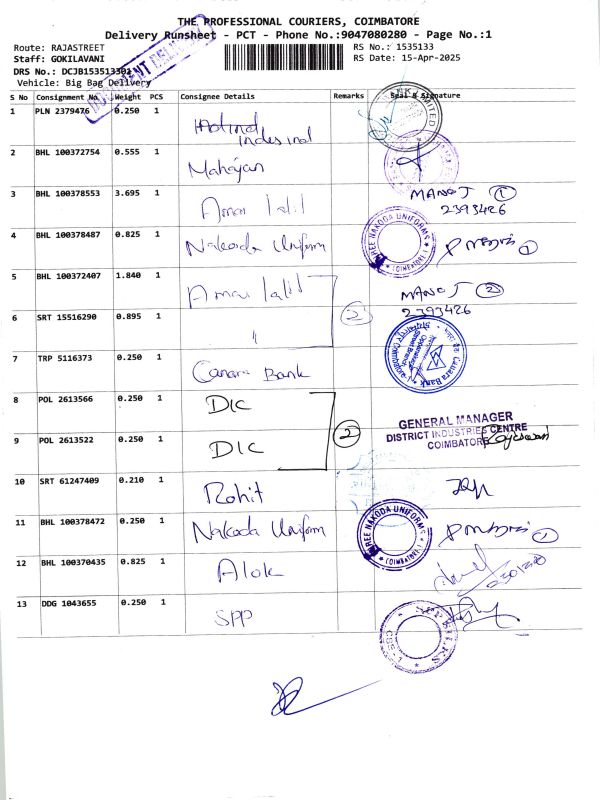 THE PROFESSIONAL COURIERS, COIMBATORE
Delivery Runsheet - PCT - Phone No.:9047080280 - Page No.:1
Route: RAJASTREET
RS No.: 1535133
Staff: GOKILAVANI
RS Date: 15-Apr-2025
DRS No.: DCJB153513303
Vehicle: Big Bag Delivery
S No Consignment No. Weight PCS Consignee Details Remarks Seal & Signature
1 PLN 2379476 0.250 1
2 BHL 100372754 0.555 1 Mahajan
3 BHL 100378553 3.695 1 Amar lalil MANOJ 1
2393426
4 BHL 100378487 0.825 1 Nakoda Uniform SHREE NAKODA UNIFORMS (COIMBATORE) 1
5 BHL 100372407 1.840 1 Amar lalil 2 MANOJ 2
2393426
6 SRT 15516290 0.895 1 "
7 TRP 5116373 0.250 1 Canara Bank Canara Bank
8 POL 2613566 0.250 1 DIC
2
GENERAL MANAGER
DISTRICT INDUSTRIES CENTRE
COIMBATORE
9 POL 2613522 0.250 1 DIC
10 SRT 61247409 0.210 1 Rohit
11 BHL 100378472 0.250 1 Nakoda Uniform SHREE NAKODA UNIFORMS (COIMBATORE) 1
12 BHL 100370435 0.825 1 Alok
13 DDG 1043655 0.250 1 SPP